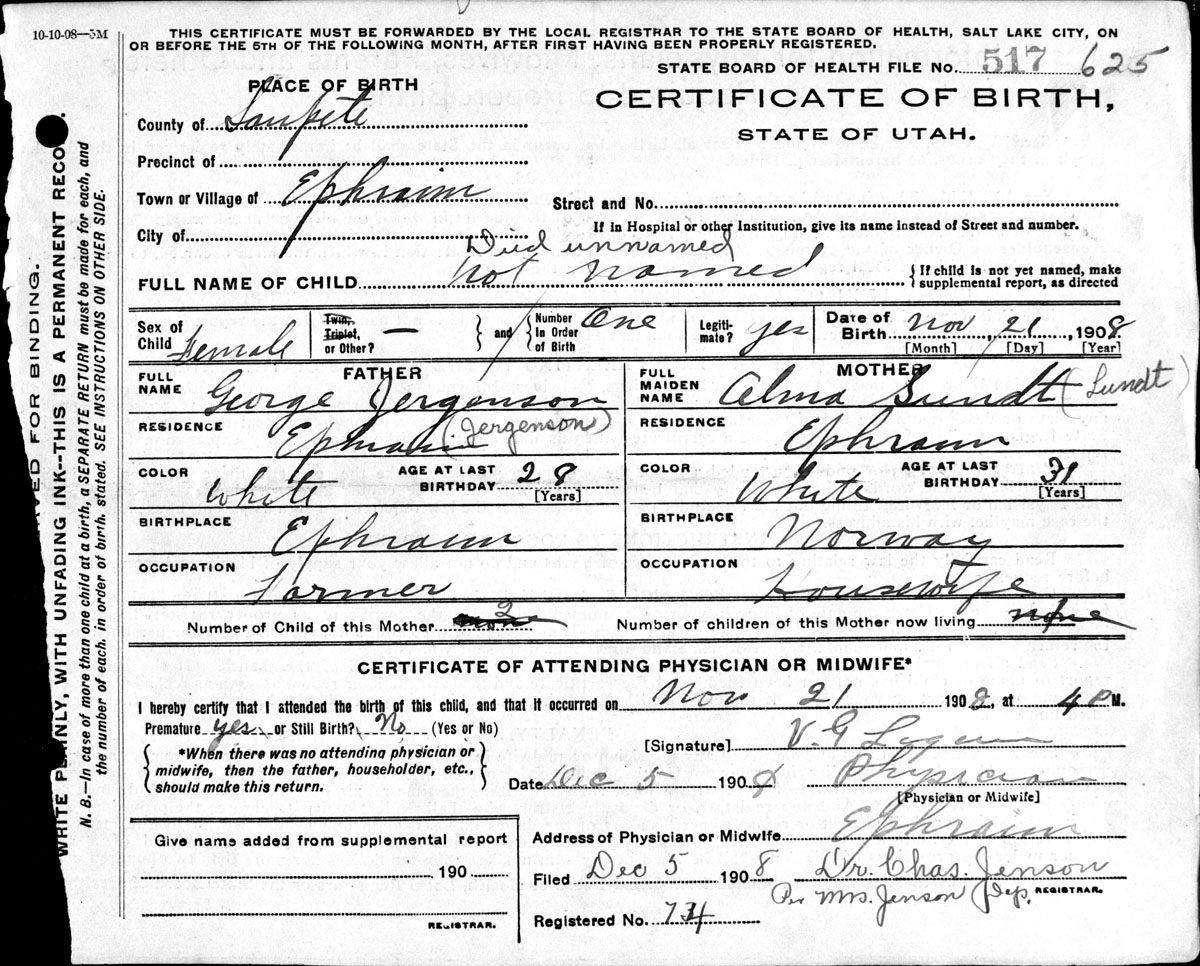 10-10-08—5M
THIS CERTIFICATE MUST BE FORWARDED BY THE LOCAL REGISTRAR TO THE STATE BOARD OF HEALTH, SALT LAKE CITY, ON
OR BEFORE THE 5TH OF THE FOLLOWING MONTH, AFTER FIRST HAVING BEEN PROPERLY REGISTERED.
STATE BOARD OF HEALTH FILE NO. 517 625
PLACE OF BIRTH
CERTIFICATE OF BIRTH,
STATE OF UTAH.
County of Sanpete
Precinct of
Town or Village of Ephraim
Street and No.
City of
If in Hospital or other Institution, give its name instead of Street and number.
Died unnamed
FULL NAME OF CHILD not named
{ If child is not yet named, make
supplemental report, as directed
Sex of Child Female
Twin, Triplet, or Other? —
} and {
Number in Order of Birth One
Legiti-mate? yes
Date of Birth Nov, 21, 1908
[Month] [Day] [Year]
FATHER
FULL NAME George Jergenson
RESIDENCE Ephraim (Jergenson)
COLOR White
AGE AT LAST BIRTHDAY 28
[Years]
BIRTHPLACE Ephraim
OCCUPATION Farmer
MOTHER
FULL MAIDEN NAME Alma Sundt (Lundt)
RESIDENCE Ephraim
COLOR White
AGE AT LAST BIRTHDAY 31
[Years]
BIRTHPLACE Norway
OCCUPATION Housewife
Number of Child of this Mother 2
Number of children of this Mother now living none
CERTIFICATE OF ATTENDING PHYSICIAN OR MIDWIFE*
I hereby certify that I attended the birth of this child, and that it occurred on Nov 21 1908, at 4 P M.
Premature yes or Still Birth? No (Yes or No)
{ *When there was no attending physician or
midwife, then the father, householder, etc.,
should make this return. }
[Signature] V. G.
Date Dec 5 190
Physician
[Physician or Midwife]
Give name added from supplemental report
190
REGISTRAR.
Address of Physician or Midwife Ephraim
Filed Dec 5 1908 Dr. Chas. Jenson
Per Mrs. Jenson Dep. REGISTRAR.
Registered No. 74
RESERVED FOR BINDING.
WRITE PLAINLY, WITH UNFADING INK--THIS IS A PERMANENT RECO
N. B.—In case of more than one child at a birth, a SEPARATE RETURN must be made for each, and
the number of each, in order of birth, stated. SEE INSTRUCTIONS ON OTHER SIDE.